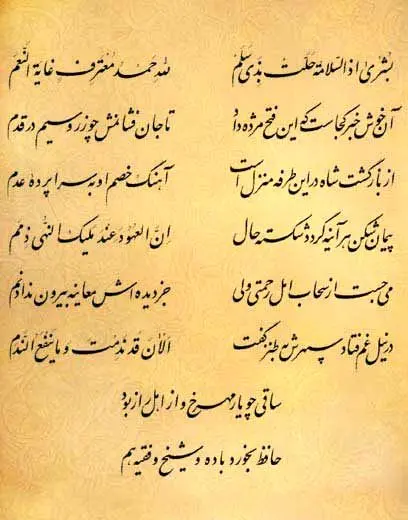 بشری اذ السلامة حلت بذی سلم لله حمد معترف غایة النعم
آن خوش خبر کجاست که این فتح مژده داد تا جان فشانمش چو زر و سیم در قدم
از بازگشت شاه در این طرفه منزل است آهنگ خصم او به سراپرده عدم
پیمان شکن هرآینه گردد شکسته حال ان العهود عند ملیک النهی ذمم
می جست از سحاب امل رحمتی ولی جز دیده اش معاینه بیرون نداد نم
در نیل غم فتاد سپهرش به طنز گفت الان قد ندمت و ما ینفع الندم
ساقی چو یار مهرخ و از اهل راز بود
حافظ بخورد باده و شیخ و فقیه هم